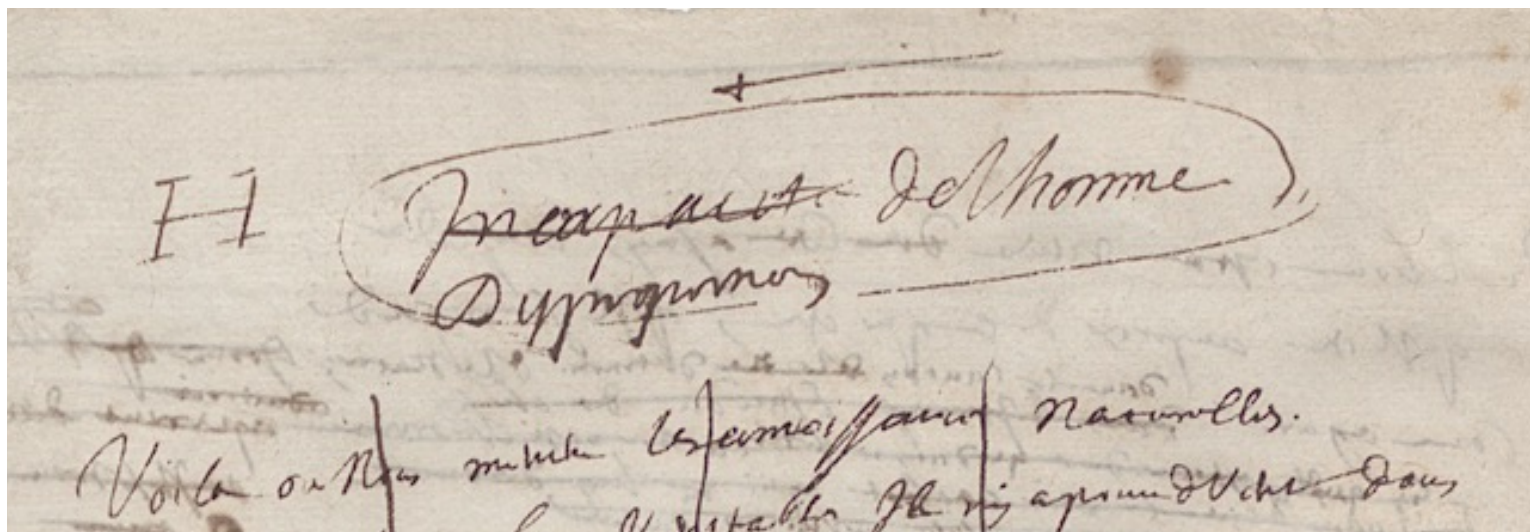 H Incapacité de l'homme
Disproportion
Voila ou Nous mènent les connaissances Naturelles.
Il n'y a point de Verité dans